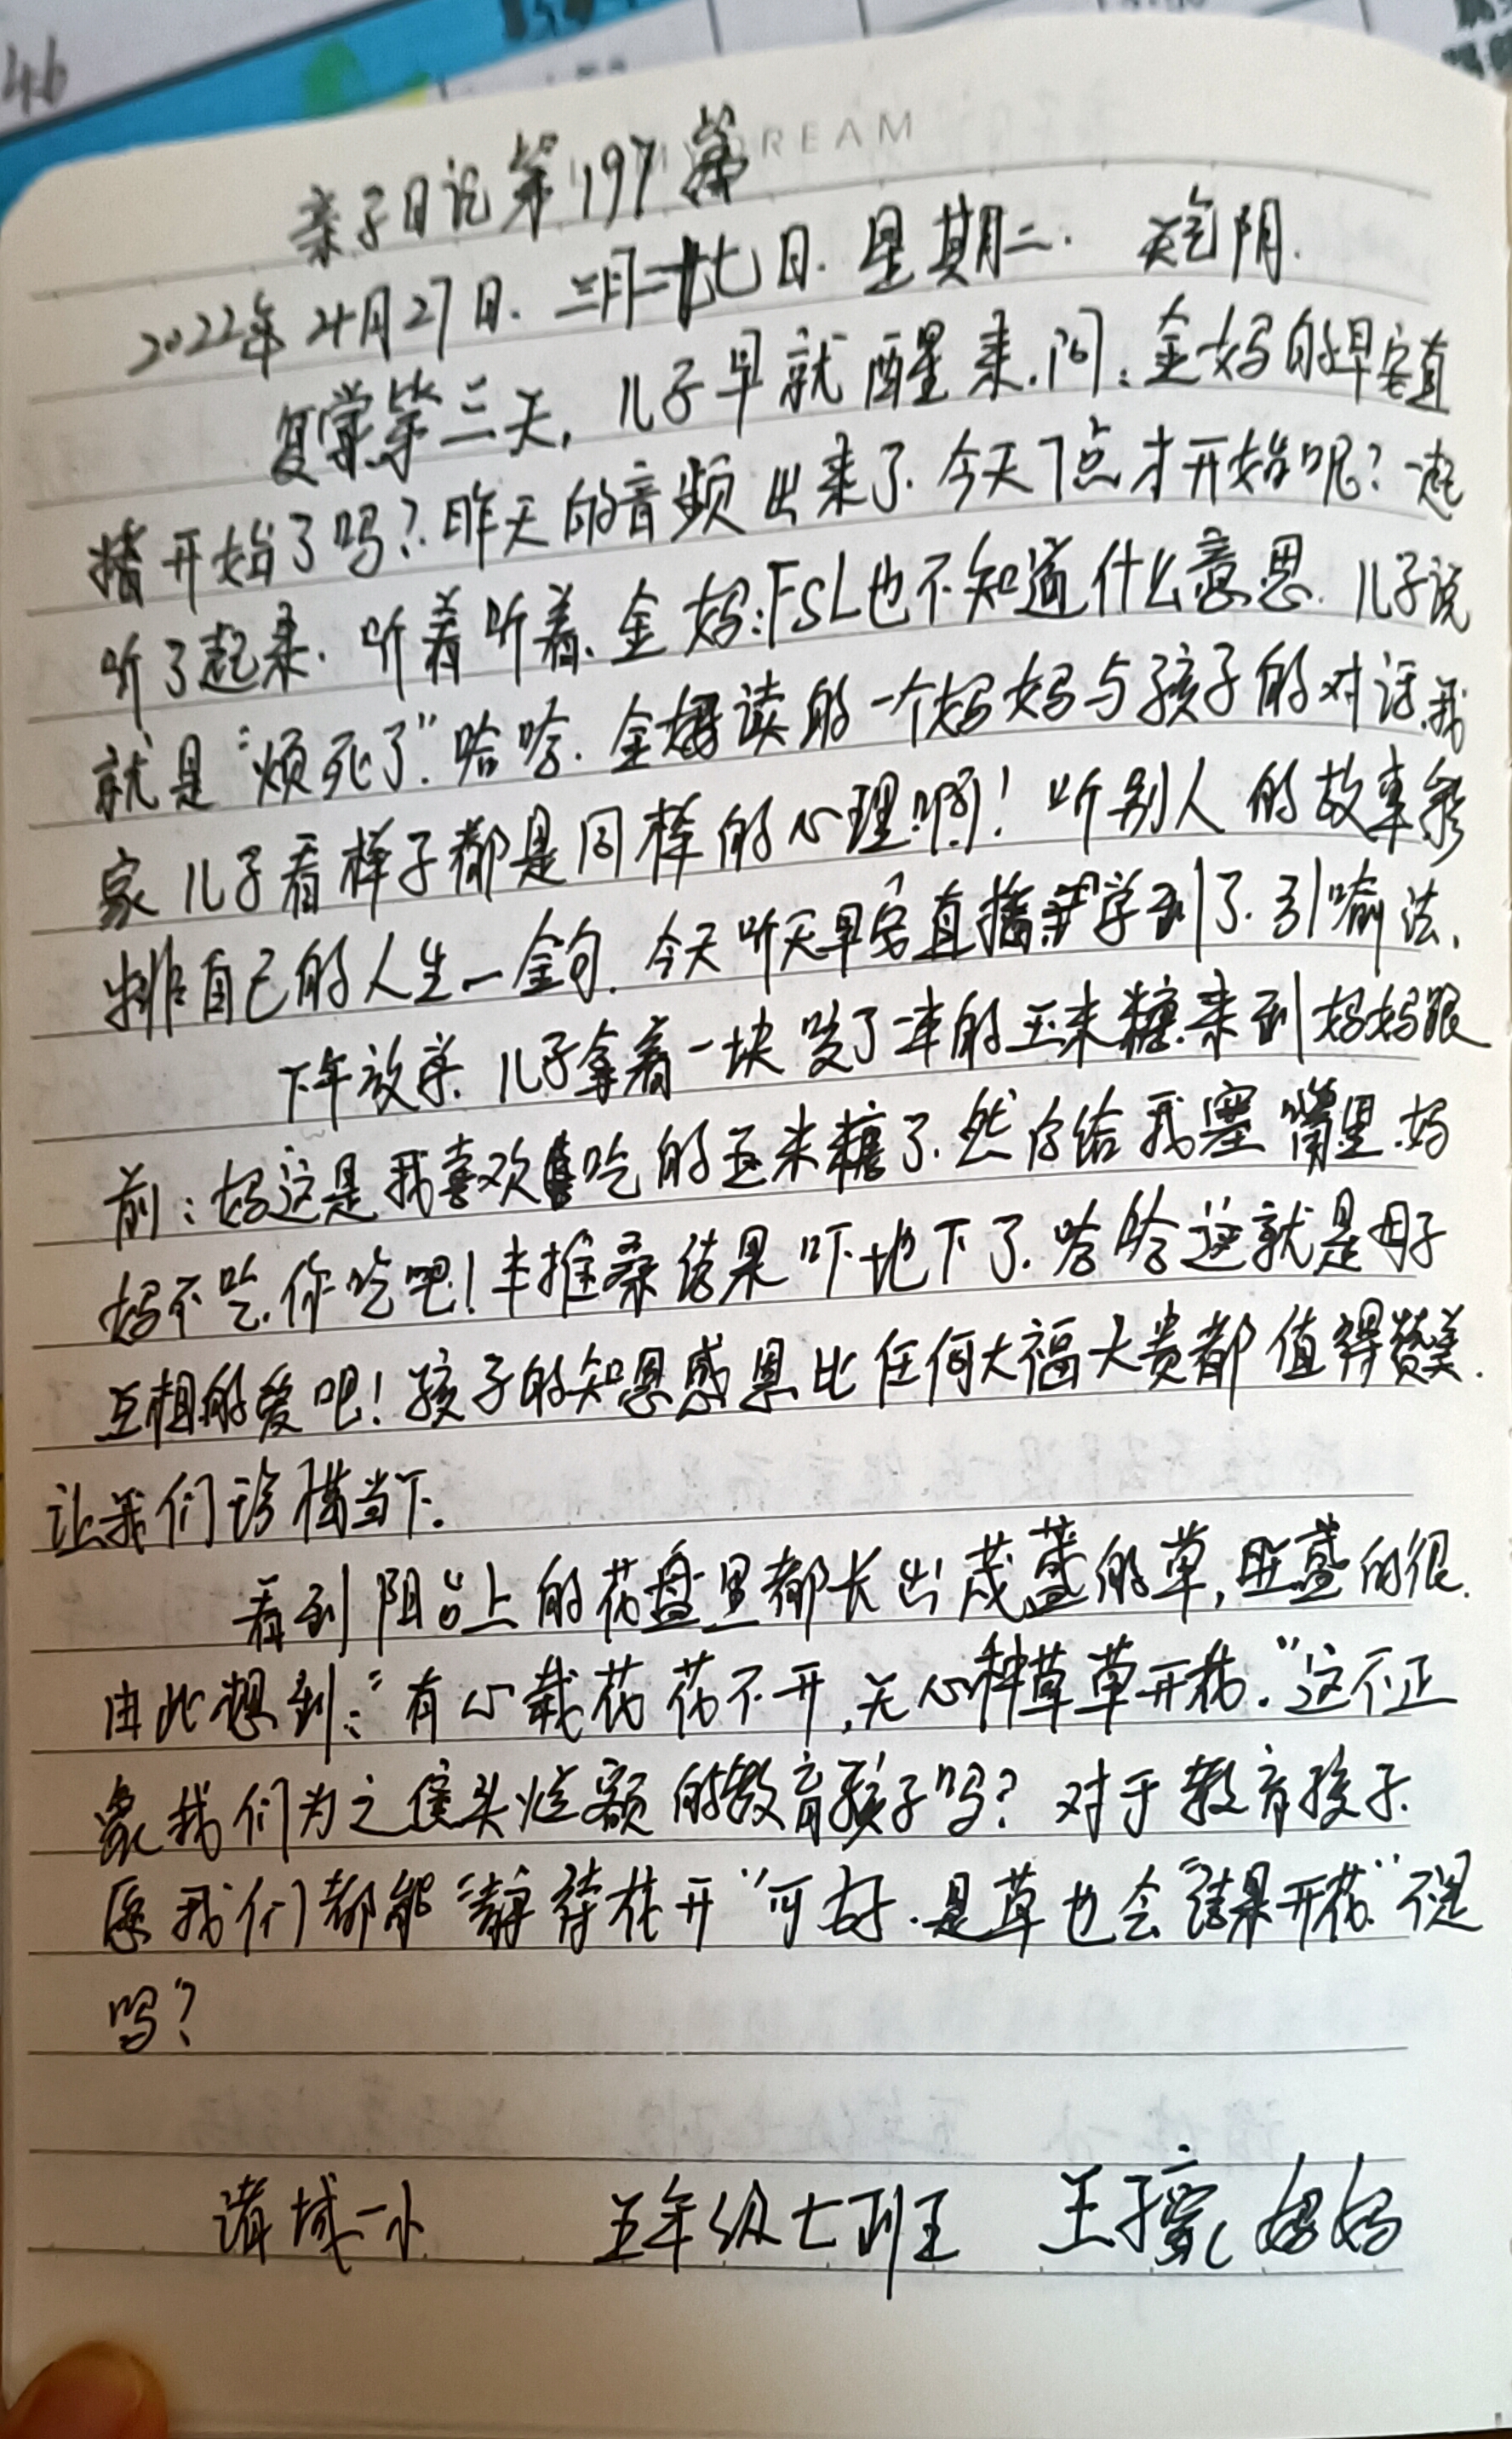 46
DREAM
亲子日记第197篇
2022年4月27日. 三月二十七日. 星期二. 天气阴.
复学第三天, 儿子早就醒来.问:金妈的早安直
播开始了吗?昨天的音频出来了.今天7点才开始呢?一起
听了起来.听着听着、金妈:FSL也不知道什么意思.儿子说
就是“烦死了”哈哈.金妈读的一个妈妈与孩子的对话,我
家儿子看样子都是同样的心理啊!听别人的故事彩
排自己的人生一金句.今天听天早安直播学到了.引喻法,
下午放学.儿子拿着一块咬了一半的玉米糖.来到妈妈跟
前:妈这是我喜欢吃的玉米糖了.然后给我塞嘴里.妈
妈不吃.你吃吧!半推桑结果吓地下了.哈哈这就是母子
互相的爱吧!孩子的知恩感恩比任何大福大贵都值得赞美.
让我们珍惜当下.
看到阳台上的花盘里都长出茂盛的草,旺盛的很.
由此想到:“有心栽花花不开,无心种草草开花.”这不正
象我们为之焦头烂额的教育孩子吗?对于教育孩子.
愿我们都能“静待花开”可好.是草也会“结果开花”不是
吗?
诸城一小 五年级七班 王子 妈妈